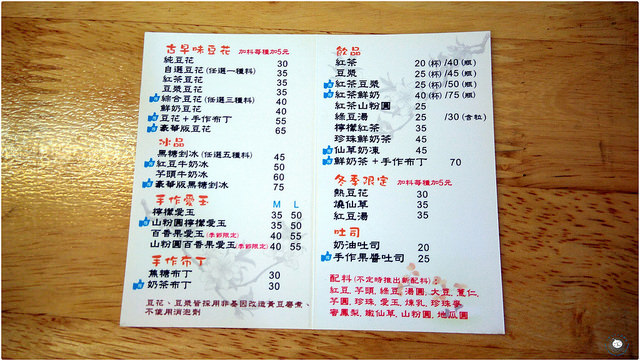 古早味豆花 加料每種加5元
純豆花 30
自選豆花(任選一種料) 35
紅茶豆花 35
豆漿豆花 35
綜合豆花(任選三種料) 40
鮮奶豆花 40
豆花+手作布丁 55
豪華版豆花 65
冰品
黑糖剉冰(任選五種料) 45
紅豆牛奶冰 50
芋頭牛奶冰 60
豪華版黑糖剉冰 75
手作愛玉 M L
檸檬愛玉 35 50
山粉圓檸檬愛玉 35 50
百香果愛玉(季節限定) 40 55
山粉圓百香果愛玉(季節限定) 40 55
手作布丁
焦糖布丁 30
奶茶布丁 30
豆花、豆漿皆採用非基因改造黃豆磨煮、
不使用消泡劑
飲品
紅茶 20(杯)/40(瓶)
豆漿 25(杯)/45(瓶)
紅茶豆漿 25(杯)/50(瓶)
紅茶鮮奶 40(杯)/75(瓶)
紅茶山粉圓 25
綠豆湯 25 /30(含粒)
檸檬紅茶 35
珍珠鮮奶茶 45
仙草奶凍 45
鮮奶茶+手作布丁 70
冬季限定 加料每種加5元
熱豆花 30
燒仙草 35
紅豆湯 35
吐司
奶油吐司 20
手作果醬吐司 25
配料(不定時推出新配料)
紅豆, 芋頭, 綠豆, 湯圓, 大豆, 薏仁,
芋圓, 珍珠, 愛玉, 煉乳, 珍珠麥,
蜜鳳梨, 嫩仙草, 山粉圓, 地瓜圓